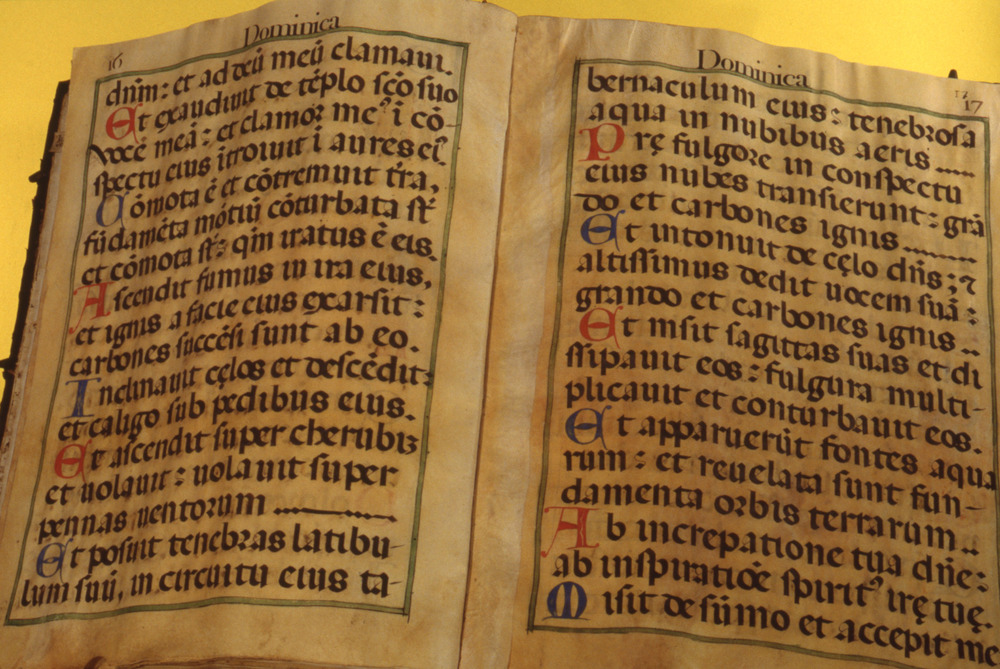 16
Dominica
dnm̄: et ad deū meū clamaui.
Et exaudiuit de tēplo scō suo
vocē meā: et clamor me⁹ ī cō-
spectu eius ītroiuit ī aures eiˢ.
Cōmota ē et cōtremuit tr̄a,
fūdamēta mōtiū cōturbata st̄
et cōmota st̄: qm̄ iratus ē eis.
Ascendit fumus in ira eius,
et ignis a facie eius exarsit:
carbones succēsi sunt ab eo.
Inclinauit cęlos et descēdit:
et caligo sub pedibus eius.
Et ascendit super cherubiz
et uolauit: uolauit super
pennas uentorum
Et posuit tenebras latibu-
lum suū, in circuitu eius ta-
Dominica
17
bernaculum eius: tenebrosa
aqua in nubibus aeris
Prę fulgore in conspectu
eius nubes transierunt: grā
do et carbones ignis
Et intonuit de cęlo dn̄s; ⁊
altissimus dedit uocem suā:
grando et carbones ignis
Et misit sagittas suas et di
ssipauit eos: fulgura multi-
plicauit et conturbauit eos.
Et apparuerūt fontes aqua
rum: et reuelata sunt fun-
damenta orbis terrarum
Ab increpatione tua dn̄e:
ab inspiratiōe spirit⁹ irę tuę.
Misit de sūmo et accepit me